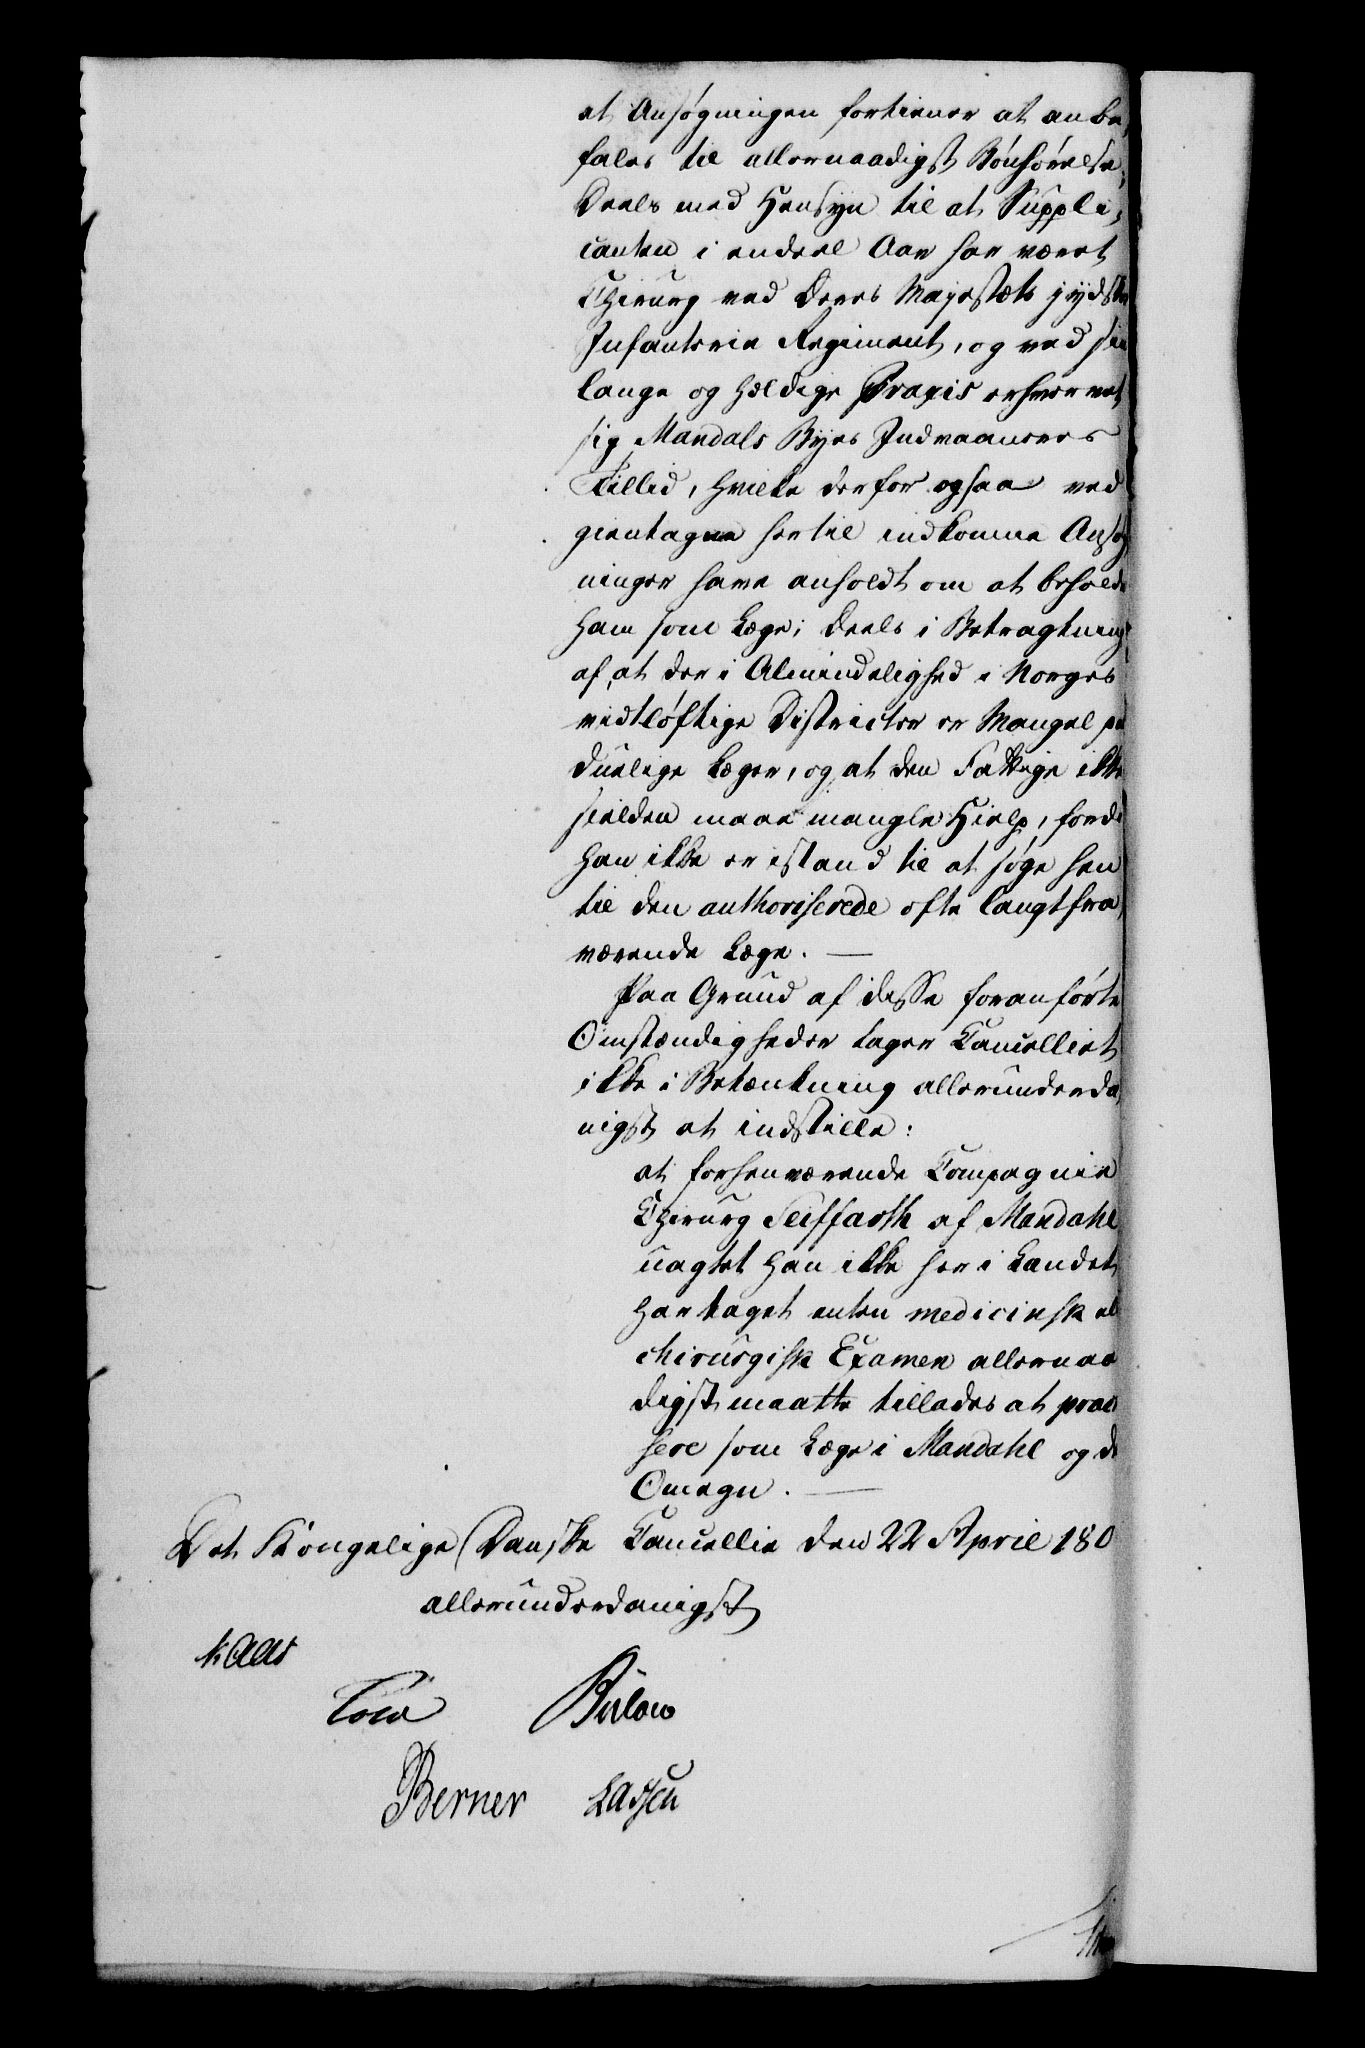 at Ansøgningen fortiener at anbe,
fales til allernaadigst Bønhørelse,
Deels med Hensyn til at Suppli,
canten i endeel Aar har været
Chirurg ved Deres Majestæts jydske
Infanterie Regiment, og ved sin
lange og heldige Praxis erhvervet
sig Mandals Byes Indvaaneres
Tillid, hvilke derfor ogsaa ved
gientagne hertil indkomne Ansøg
ninger have anholdt om at beholde
ham som Læge; deels i Betragtning
af, at der i Almindelighed i Norges
vidtløftige Districter er Mangel paa
duelige Læger, og at den Fattige ikke
sielden maae mangle Hielp, fordi
han ikke er istand til at søge hen
til den authoriserede ofte langtfra,
værende Læge. —
Paa Grund af disse foranførte
Omstændigheder tager Cancelliet
ikke i Betænkning allerunderda,
nigst at indstille:
at forhenværende Compagnie
Chirurg Seiffarth af Mandahl
uagtet han ikke her i Landet
har taget enten medicinsk el
chirurgisk Examen allernaa
digst maatte tillades at prac
sere som Læge i Mandahl og d
Omegn. —
Det Kongelige Danske Cancellie den 22 April 180
allerunderdanigst
Kaas
Cold Bülow
Berner Lassen